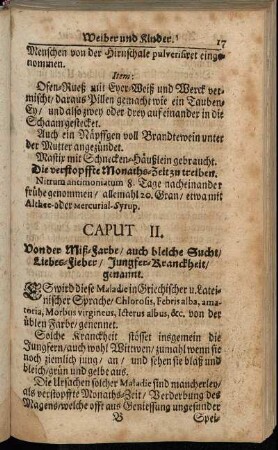 Weiber und Kinder. 17
Menschen von der Hirnschale pulverisiret einge-
nommen.
Item:
Ofen-Rueß mit Eyer-Weiß und Werck ver-
mischt/ daraus Pillen gemacht wie ein Tauben-
Ey/ und also zwey oder drey auf einander in die
Schaam gestecket.
Auch ein Näpffgen voll Brandtewein unter
der Mutter angezündet.
Mastix mit Schnecken-Häußlein gebraucht.
Die verstopffte Monaths-Zeit zu treiben.
Nitrum antimoniatum 8. Tage nacheinander
frühe genommen/ allemahl 20. Gran/ etwa mit
Althee- oder Mercurial-Syrup.
CAPUT II.
Von der Miß-Farbe/ auch bleiche Sucht/
Liebes-Fieber/ Jungfer-Kranckheit/
genannt.
ES wird diese Maladie in Griechischer u. Latei-
nischer Sprache/ Chlorosis, Febris alba, ama-
toria, Morbus virgineus, Icterus albus, &c. von der
üblen Farbe/ genennet.
Solche Kranckheit stösset insgemein die
Jungfern/ auch wohl Wittwen/ zumahl wenn sie
noch ziemlich jung/ an/ und sehen sie blaß und
bleich/ grün und gelbe aus.
Die Ursachen solcher Maladie sind mancherley/
als verstopffte Monaths-Zeit/ Verderbung des
Magens/ welche offt aus Geniessung ungesunder
B Spei-